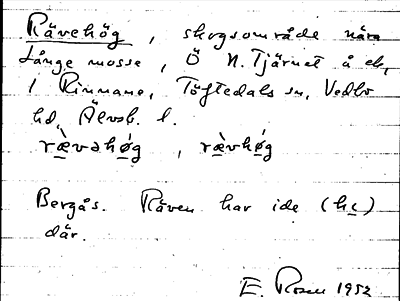 Rävehög, skogsområde nära
Långe mosse, Ö N. Tjärnet å ek.
1 Rinnane, Töftedals sn, Vedbo
hd, Älvsb. l.
ræ̀vəhø̀g, ræ̀vhø̀g
Bergås. Räven har ide (hi)
där.
E. Rosen 1952